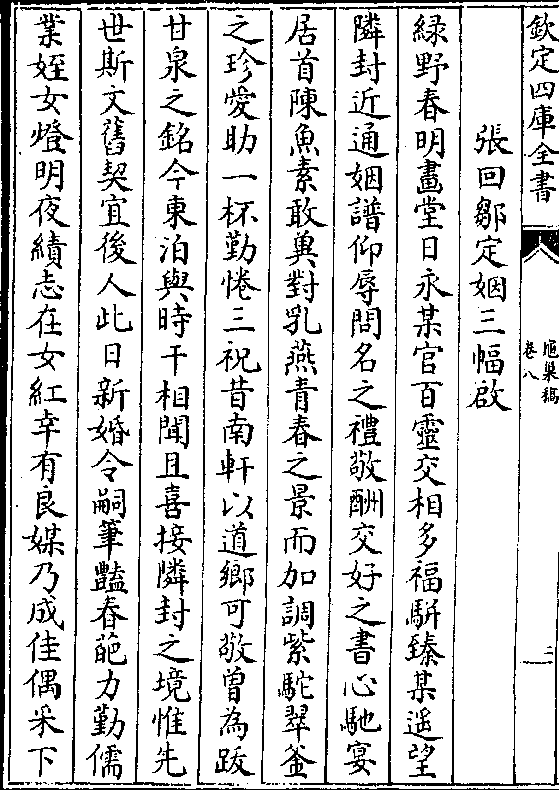 欽定四庫全書
龜巢稿
卷八
三
張回鄒定姻三幅啟
緑野春明畫堂日永某官百靈交相多福駢臻某遥望
隣封近通姻譜仰辱問名之禮敬酬交好之書心馳宴
居首陳魚素敢冀對乳燕青春之景而加調紫駝翠釡
之珍愛助一杯勤惓三祝昔南軒以道鄉可敬曽為跋
甘泉之銘今東泊與時干相聞且喜接隣封之境惟先
世斯文舊契宜後人此日新婚令嗣筆豔春葩力勤儒
業姪女燈明夜績志在女紅幸有良媒乃成佳偶采下